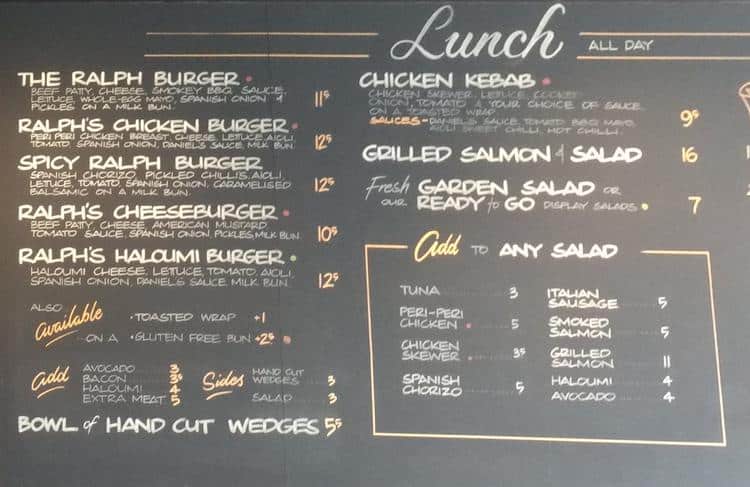 Lunch ALL DAY
THE RALPH BURGER
BEEF PATTY, CHEESE, SMOKEY BBQ SAUCE,
LETTUCE, WHOLE-EGG MAYO, SPANISH ONION &
PICKLES ON A MILK BUN. 11⁵
RALPH'S CHICKEN BURGER
PERI PERI CHICKEN BREAST, CHEESE, LETTUCE, AIOLI,
TOMATO, SPANISH ONION, DANIEL'S SAUCE, MILK BUN. 12⁵
SPICY RALPH BURGER
SPANISH CHORIZO, PICKLED CHILLI'S, AIOLI,
LETTUCE, TOMATO, SPANISH ONION, CARAMELISED
BALSAMIC ON A MILK BUN. 12⁵
RALPH'S CHEESEBURGER
BEEF PATTY, CHEESE, AMERICAN MUSTARD,
TOMATO SAUCE, SPANISH ONION, PICKLES, MILK BUN. 10⁵
RALPH'S HALOUMI BURGER
HALOUMI CHEESE, LETTUCE, TOMATO, AIOLI,
SPANISH ONION, DANIEL'S SAUCE, MILK BUN. 12⁵
ALSO
available
• TOASTED WRAP +1
ON A • GLUTEN FREE BUN +2⁵
Add
AVOCADO 3
BACON 3⁵
HALOUMI 4
EXTRA MEAT 5
Sides
HAND CUT
WEDGES 3
SALAD 3
BOWL of HAND CUT WEDGES 5⁵
CHICKEN KEBAB
CHICKEN SKEWER, LETTUCE, COOKED
ONION, TOMATO & YOUR CHOICE OF SAUCE
ON A TOASTED WRAP
SAUCES - DANIEL'S SAUCE, TOMATO, BBQ, MAYO,
AIOLI, SWEET CHILLI, HOT CHILLI. 9⁵
GRILLED SALMON & SALAD 16
Fresh GARDEN SALAD OR
OUR READY to GO DISPLAY SALADS 7
Add TO ANY SALAD
TUNA 3
PERI-PERI
CHICKEN 5
CHICKEN
SKEWER 3⁵
SPANISH
CHORIZO 5
ITALIAN
SAUSAGE 5
SMOKED
SALMON 5
GRILLED
SALMON 11
HALOUMI 4
AVOCADO 4